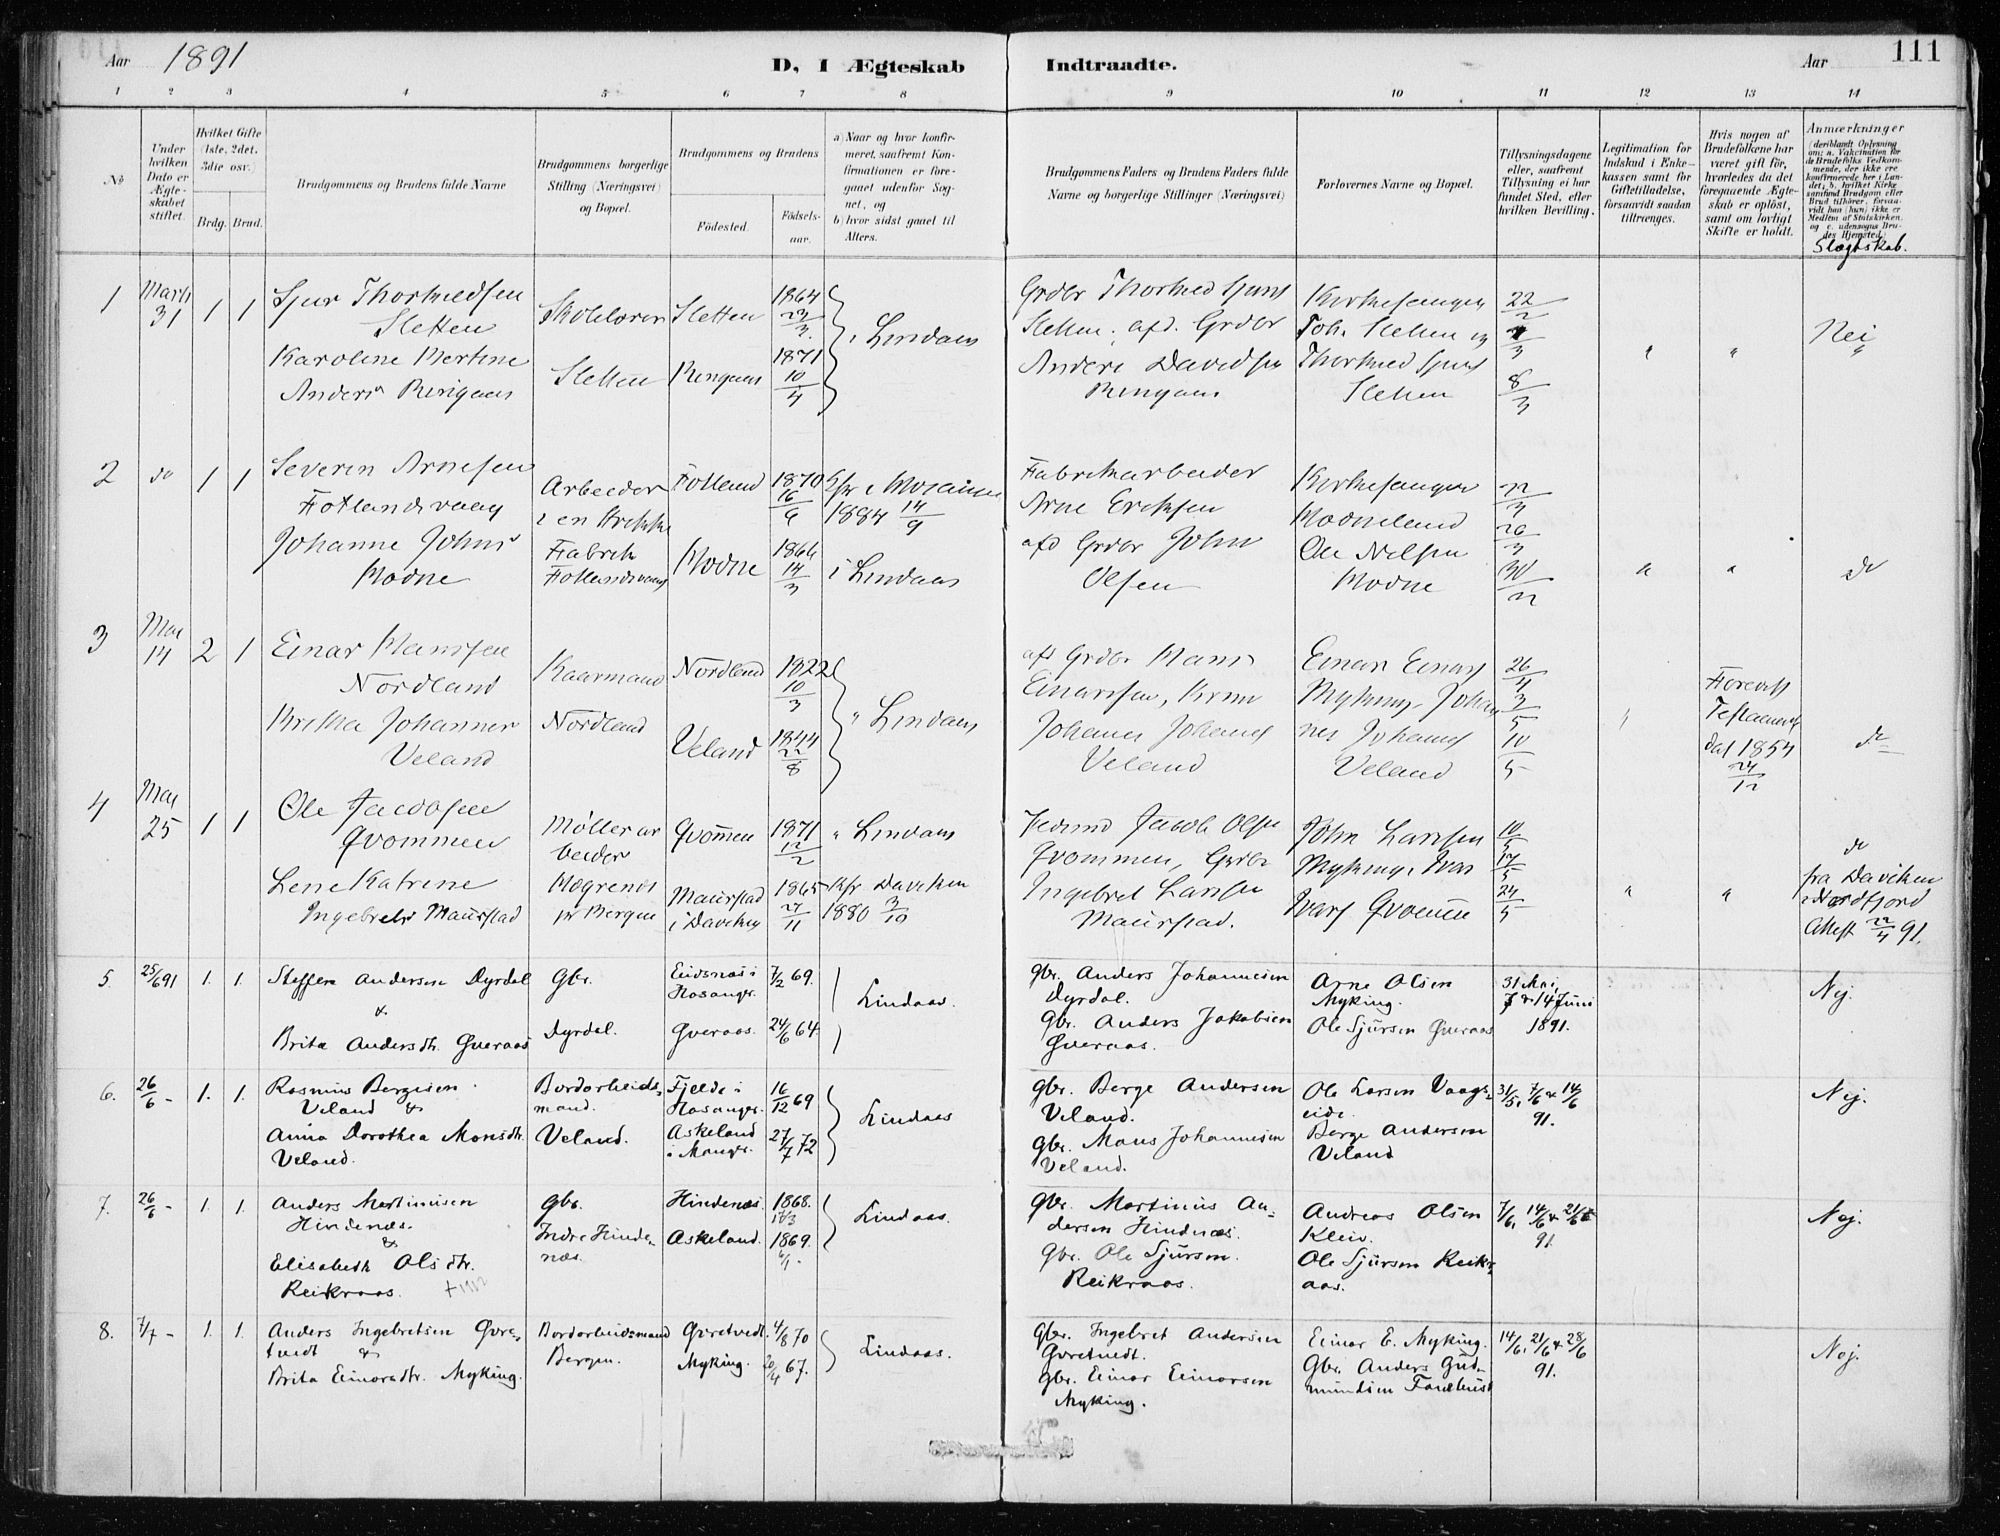 Aar 1891
D, I Ægteskab Indtraadte.
Aar 111
1 2 3 4 5 6 7 8 9 10 11 12 13 14
No
Under hvilken Dato er Ægteskabet stiftet.
Hvilket Gifte (1ste, 2det, 3die osv.)
Brdg. Brud.
Brudgommens og Brudens fulde Navne
Brudgommens borgerlige Stilling (Næringsvei) og Bopæl.
Brudgommens og Brudens
Fødested.
Fødsels-aar.
a) Naar og hvor konfirmeret, saafremt Konfirmationen er foregaaet udenfor Sognet, og
b) hvor sidst gaaet til Alters.
Brudgommens Faders og Brudens Faders fulde Navne og borgerlige Stillinger (Næringsvei)
Forlovernes Navne og Bopæl.
Tillysningsdagene eller, saafremt Tillysning ei har fundet Sted, efter hvilken Bevilling.
Legitimation for Indskud i Enkekassen samt for Giftetilladelse, forsaavidt saadan tiltrænges.
Hvis nogen af Brudefolkene har været gift før, hvorledes da det foregaaende Ægteskab er opløst, samt om lovligt Skifte er holdt.
Anmærkninger (deriblandt Oplysning om: a. Vakcination for de Brudefolks Vedkommende, der ikke ere konfirmerede her i Landet; b. hvilket Kirkesamfund Brudgom eller Brud tilhører, forsaavidt han (hun) ikke er Medlem af Statskirken, og c. udensogns Brudes Hjemsted.)
Slægtskab.
1 Marts 31 1 1
Sjur Thorkildsen Sletten
Sletten 1864 23/3
i Lindaas
Sletten, afd. Grdbr
22/2
Nei
Karoline Mertine Anders
Sletten
1871 10/4
Anders Davidsen
Sletten
8/3
2 do 1 1
Severin Arnesen Fotlandsvaag
Arbeider
Fotland 1870 16/6
1884 14/9
Fabrikarbeider Arne Eriksen
Johanne Johns Modne
Fabrik
Modne 14/3
i Lindaas
afd Grdbr John Olsen
Ole Nilsen Modne
do
3 Mai 14 2 1
Einar Monssen Nordland
Kaarmand
Nordland 1822 10/3
Lindaas
afd Grdbr
Einar Einars
26/4 3/5 10/5
Johannes Veland
Nordland
Veland 1844 22/8
Johannes Johannes Veland
Johannes Johannes Veland
1854
do
4 Mai 25 1 1
Ole Jacobsen Qvommen
Møllerarbeider
Qvommen 1871 12/2
Lindaas
Jacob Olsen Qvommen, Grdbr
John Larssen
10/5 17/5 24/5
do
Lene Katrine Ingebrets Maurstad
pr Bergen
Maurstad i Daviken 1865 27/11
Kfr Daviken 1880 3/10
Ingebret Larssen Maurstad.
Ivars Qvommen
fra Daviken i Nordfjord Attest 22/4 91.
5. 25/6 91 1. 1.
Steffen Andersen Dyrdal &
Gbr.
Eidsnæs i Hosanger. 7/2 69.
Lindaas.
gbr. Anders Johannesen Dyrdal.
Arne Olsen Myking.
31 Mai, 7 & 14 Juni 1891.
Nej.
Brita Andersdtr. Gveraas
Dyrdal.
Gveraas. 24/6 64.
gbr. Anders Jakobsen Gveraas.
Ole Sjursen Gveraas
6. 26/6 - 1. 1.
Rasmus Bergesen Veland &
Bordarbeidsmand.
Fjelde i Hosanger. 16/12 69
Lindaas
gbr. Berge Andersen Veland.
Ole Larsen Vaagseide.
31/5, 7/6 & 14/6 91.
Nej.
Anna Dorothea Monsdtr. Veland.
Veland.
Askeland i Manger. 27/7 72
gbr. Mons Johannesen Veland.
Berge Andersen Veland
7. 26/6 - 1. 1.
Anders Martinusen Hindenæs. &
gbr.
Hindenæs. 1868. 17/3
Lindaas.
gbr. Martinus Andersen Hindenæs.
Andreas Olsen Kleiv.
7/6, 14/6 & 21/6 91
Nej.
Elisabeth Olsdtr. Reikraas.
Indre Hindenæs.
Askeland. 1869. 6/1.
gbr. Ole Sjursen Reikraas.
Ole Sjursen Reikraas.
8. 7/7 - 1. 1.
Anders Ingebretsen Qvretvedt &
Bordarbeidsmand Bergen.
Qvretvedt. 4/8 70
Lindaas.
gbr. Ingebret Andersen Qvretvedt.
Einar E. Myking.
14/6, 21/6 & 28/6 91.
Nej.
Brita Einarsdtr. Myking.
Myking. 20/4 67.
gbr. Einar Einarsen Myking.
Gbr. Anders Gudmundsen Fanebust